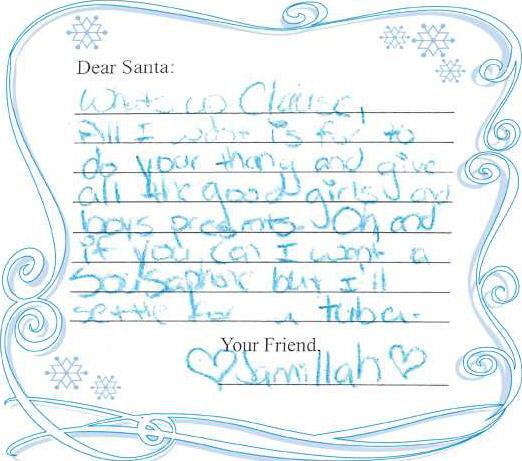 Dear Santa:
What's up Clause,
All I want is for to
do your thang and give
all the good girls and
boys presents. Oh and
if you can I want a
Sousaphone but I'll
settle for a tuba.
Your Friend,
Jamillah